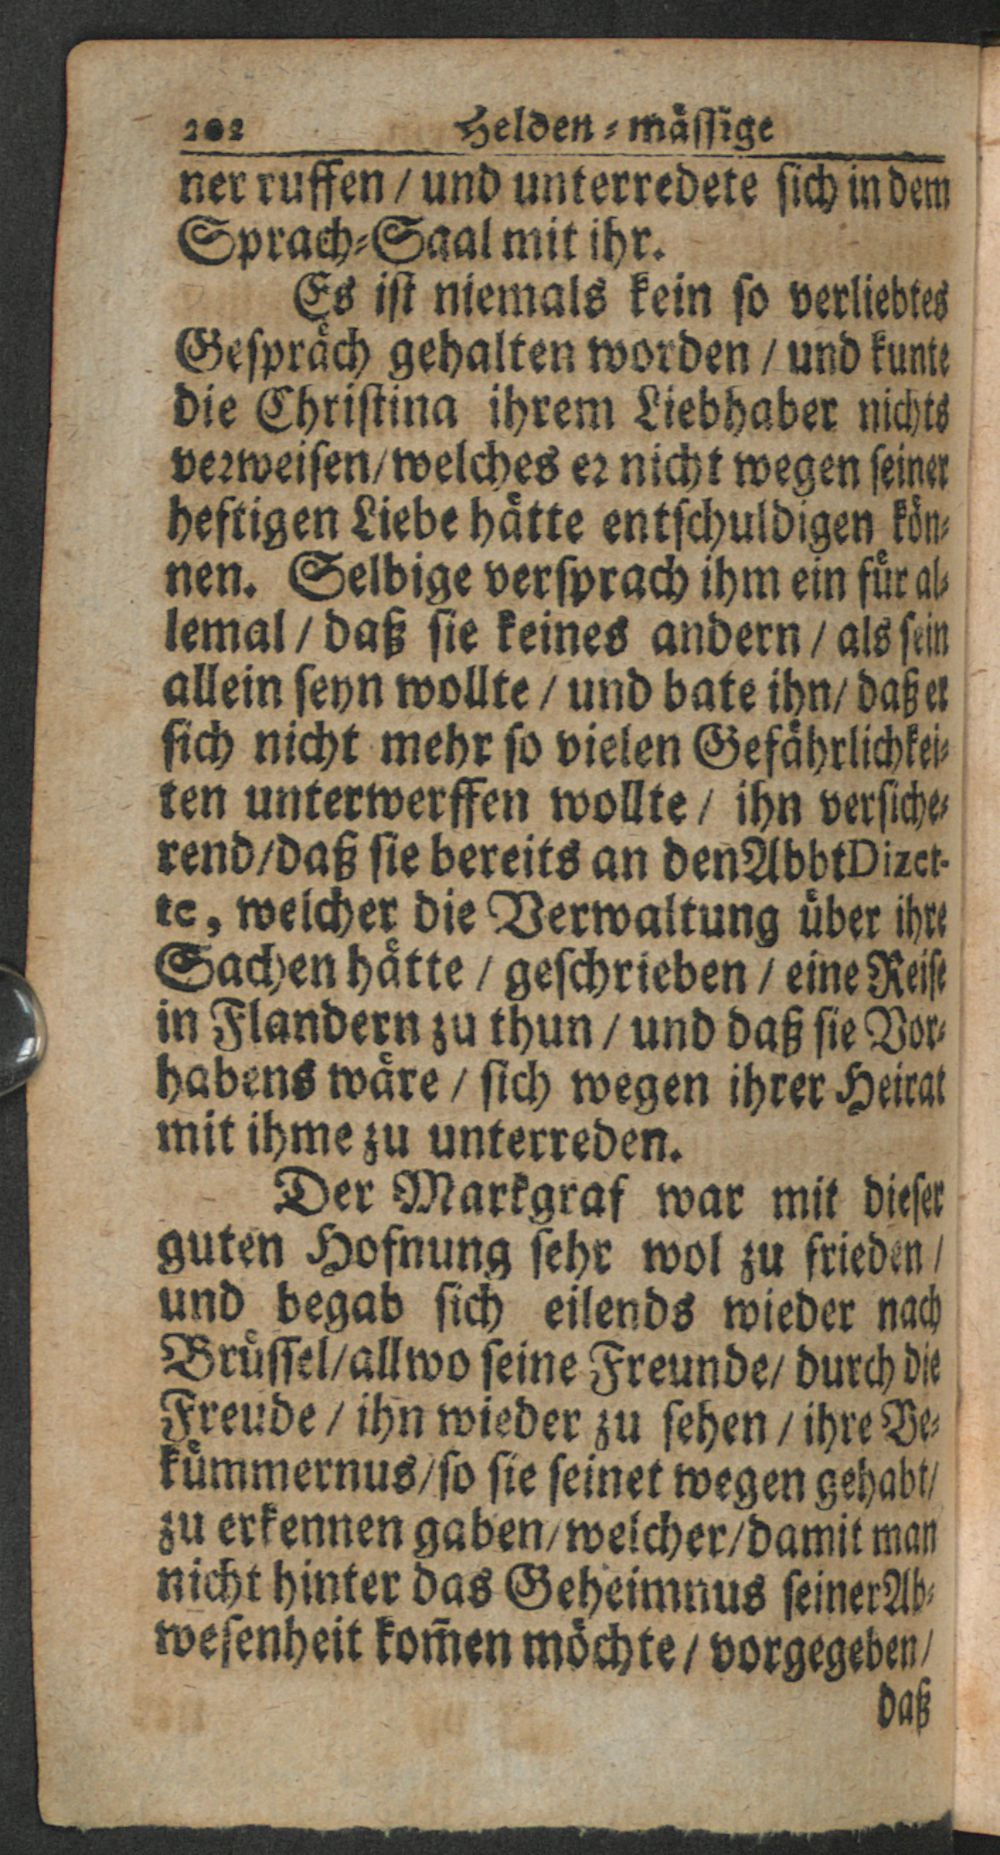 202 Helden-mässige
ner ruffen / und unterredete sich in dem
Sprach-Saal mit ihr.
Es ist niemals kein so verliebtes
Gespräch gehalten worden / und kunte
die Christina ihrem Liebhaber nichts
verweisen/welches er nicht wegen seiner
heftigen Liebe hätte entschuldigen kön-
nen. Selbige versprach ihm ein für al-
lemal / daß sie keines andern / als sein
allein seyn wollte / und bate ihn/ daß er
sich nicht mehr so vielen Gefährlichkei-
ten unterwerffen wollte / ihn versiche-
rend/daß sie bereits an den Abbt Dizet-
te, welcher die Verwaltung über ihre
Sachen hätte / geschrieben / eine Reise
in Flandern zu thun / und daß sie Vor-
habens wäre / sich wegen ihrer Heirat
mit ihme zu unterreden.
Der Markgraf war mit dieser
guten Hofnung sehr wol zu frieden /
und begab sich eilends wieder nach
Brüssel/allwo seine Freunde/ durch die
Freude / ihn wieder zu sehen / ihre Be-
kümmernus/so sie seinet wegen gehabt/
zu erkennen gaben/welcher/damit man
nicht hinter das Geheimnus seiner Ab-
wesenheit kom̄en möchte / vorgegeben/
daß